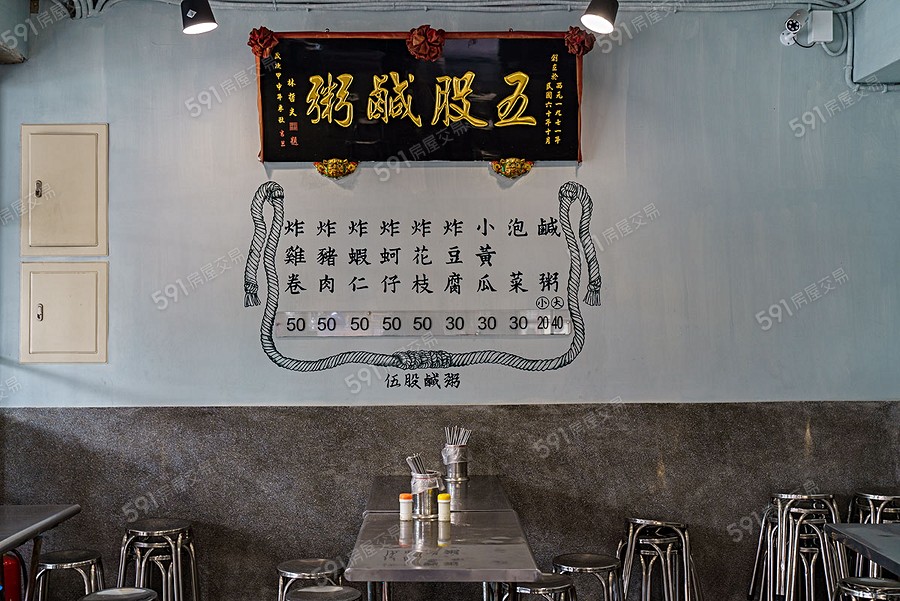 五股鹹粥
創立於西元一九七一年
民國六十年十月
林哲夫 題
鹹粥 大 小 40 20
泡菜 30
小黃瓜 30
炸豆腐 30
炸花枝 50
炸蚵仔 50
炸蝦仁 50
炸豬肉 50
炸雞卷 50
伍股鹹粥
591房屋交易